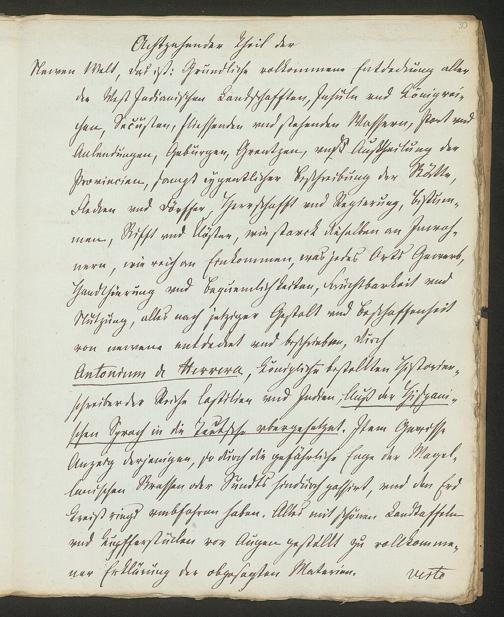 30
Achtzehender Theil der
Newen Welt, das ist: Gründliche volkommene Entdeckung aller
der West Indianischen Landschafften, Insuln und Königrei-
chen, Seecüsten, fliessenden und stehenden Wassern, Port und
Anlendungen, Gebürgen, Grentzen, und Außtheilung der
Provincien, sampt eygentlicher Beschreibung der Stätte,
Flecken und Dörffer, Herrschafft und Regierung, Bistum-
men, Stifft und Clöster, wie starck dieselben an Inwoh-
nern, wie reich an Einkommen, was jedes Orts Gewerb,
Handthierung und Bequemlichkeiten, Fruchtbarkeit und
Nutzung, alles nach jetziger Gestalt und Beschaffenheit
von newem entdecket und beschrieben, durch
Antonium de Herrera, Königlichen bestellten Historien-
schreiber der Reiche Castilien und Indien. Auß der Hispani-
schen Sprach in die Teutsche übergesetzt. Item Gewisse
Anzeig derjenigen, so durch die gefährliche Enge der Magel,
lanischen Strassen oder Sundts hindurch passirt, und den Erd
Kreiß rings umbfahren haben. Alles mit schönen Landtaffeln
und Kupfferstücken vor Augen gestellt zu vollkomme,
ner Erklärung der obgesagten Materien.